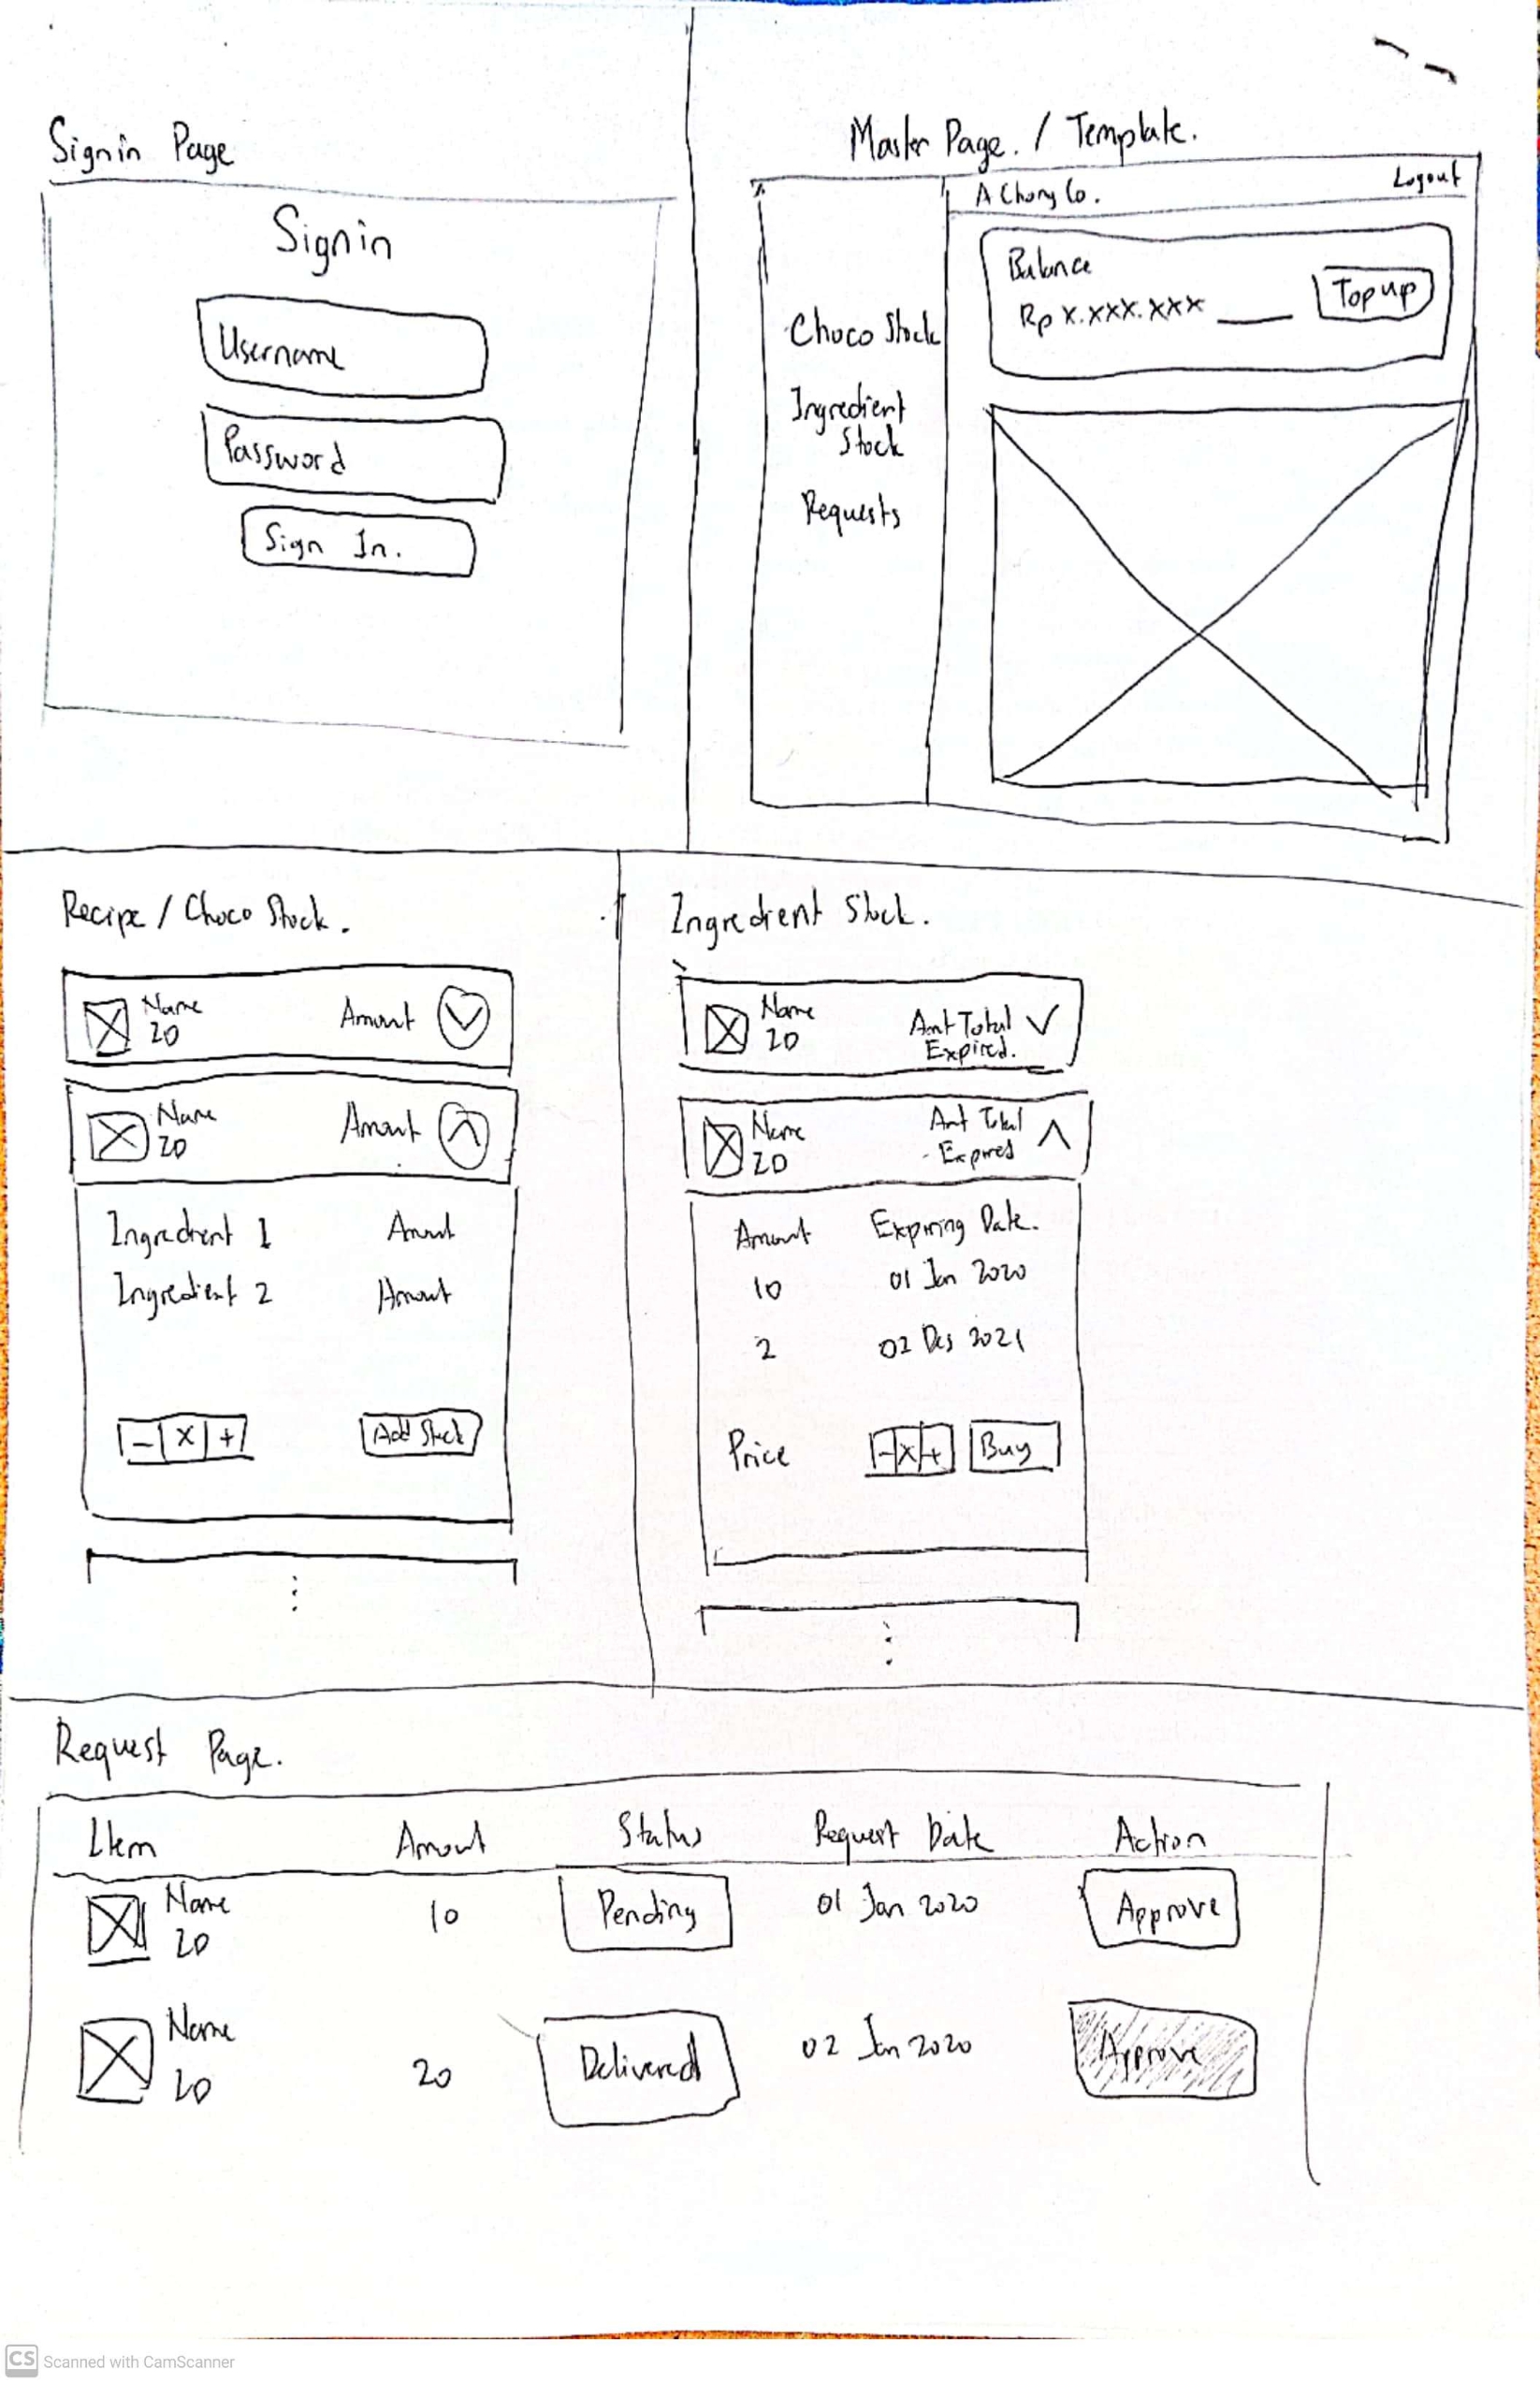 Signin Page
Signin
Username
Password
Sign In.
Master Page. / Template.
A Chong Co.
Logout
Balance
Rp X.XXX.XXX
Top up
Choco Stock
Ingredient
Stock
Requests
Recipe / Choco Stock.
Name
20
Amount
Name
20
Amount
Ingredient 1 Amount
Ingredient 2 Amount
- X + Add Stock
Ingredient Stock.
Name
20
Amt Total
Expired.
Name
20
Amt Total
Expired
Amount Expiring Date.
10 01 Jan 2020
2 02 Des 2021
Price - X + Buy
Request Page.
Item Amount Status Request Date Action
Name
20
10 Pending 01 Jan 2020 Approve
Name
20
20 Delivered 02 Jan 2020 Approve
CS Scanned with CamScanner